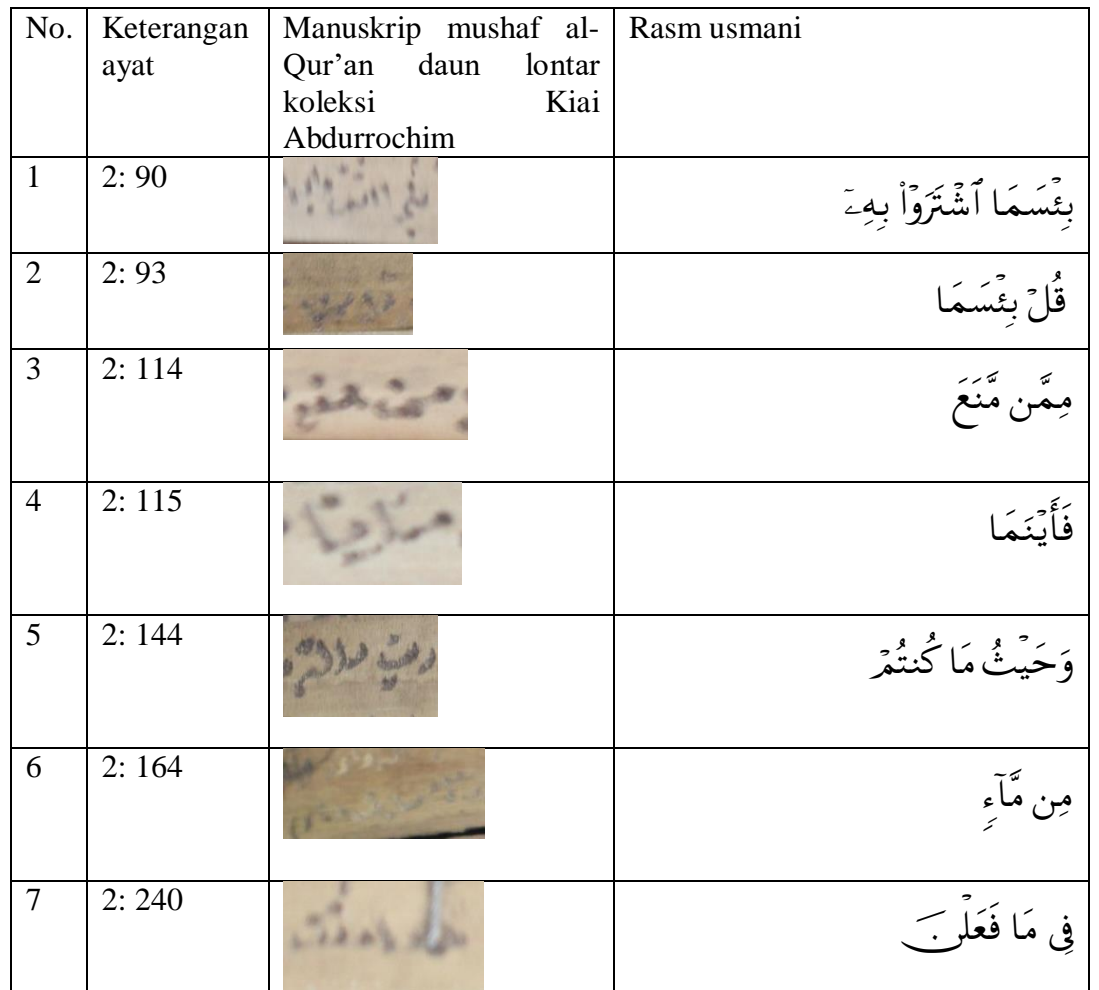 No. Keterangan ayat Manuskrip mushaf al-Qur'an daun lontar koleksi Kiai Abdurrochim Rasm usmani
1 2: 90 بِئْسَمَا ٱشْتَرَوْا۟ بِهِۦٓ
2 2: 93 قُلْ بِئْسَمَا
3 2: 114 مِمَّن مَّنَعَ
4 2: 115 فَأَيْنَمَا
5 2: 144 وَحَيْثُ مَا كُنتُمْ
6 2: 164 مِن مَّآءٍ
7 2: 240 فِى مَا فَعَلْنَ